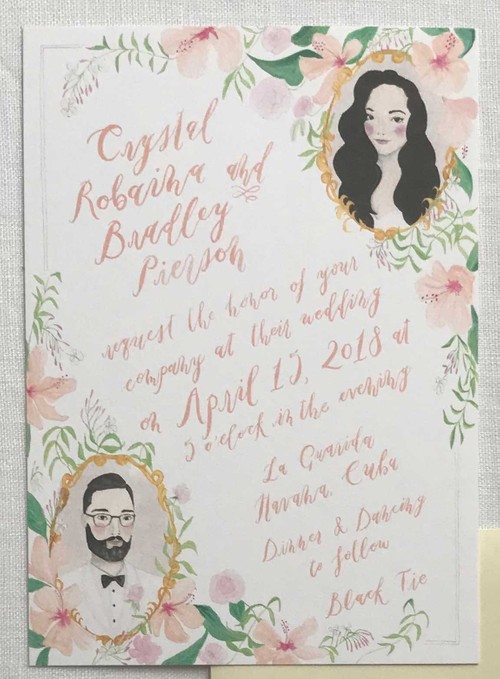 Crystal
Robaina and
Bradley
Pierson
request the honor of your
company at their wedding
on April 15, 2018 at
5 o'clock in the evening
La Guarida
Havana, Cuba
Dinner & Dancing
to follow
Black Tie